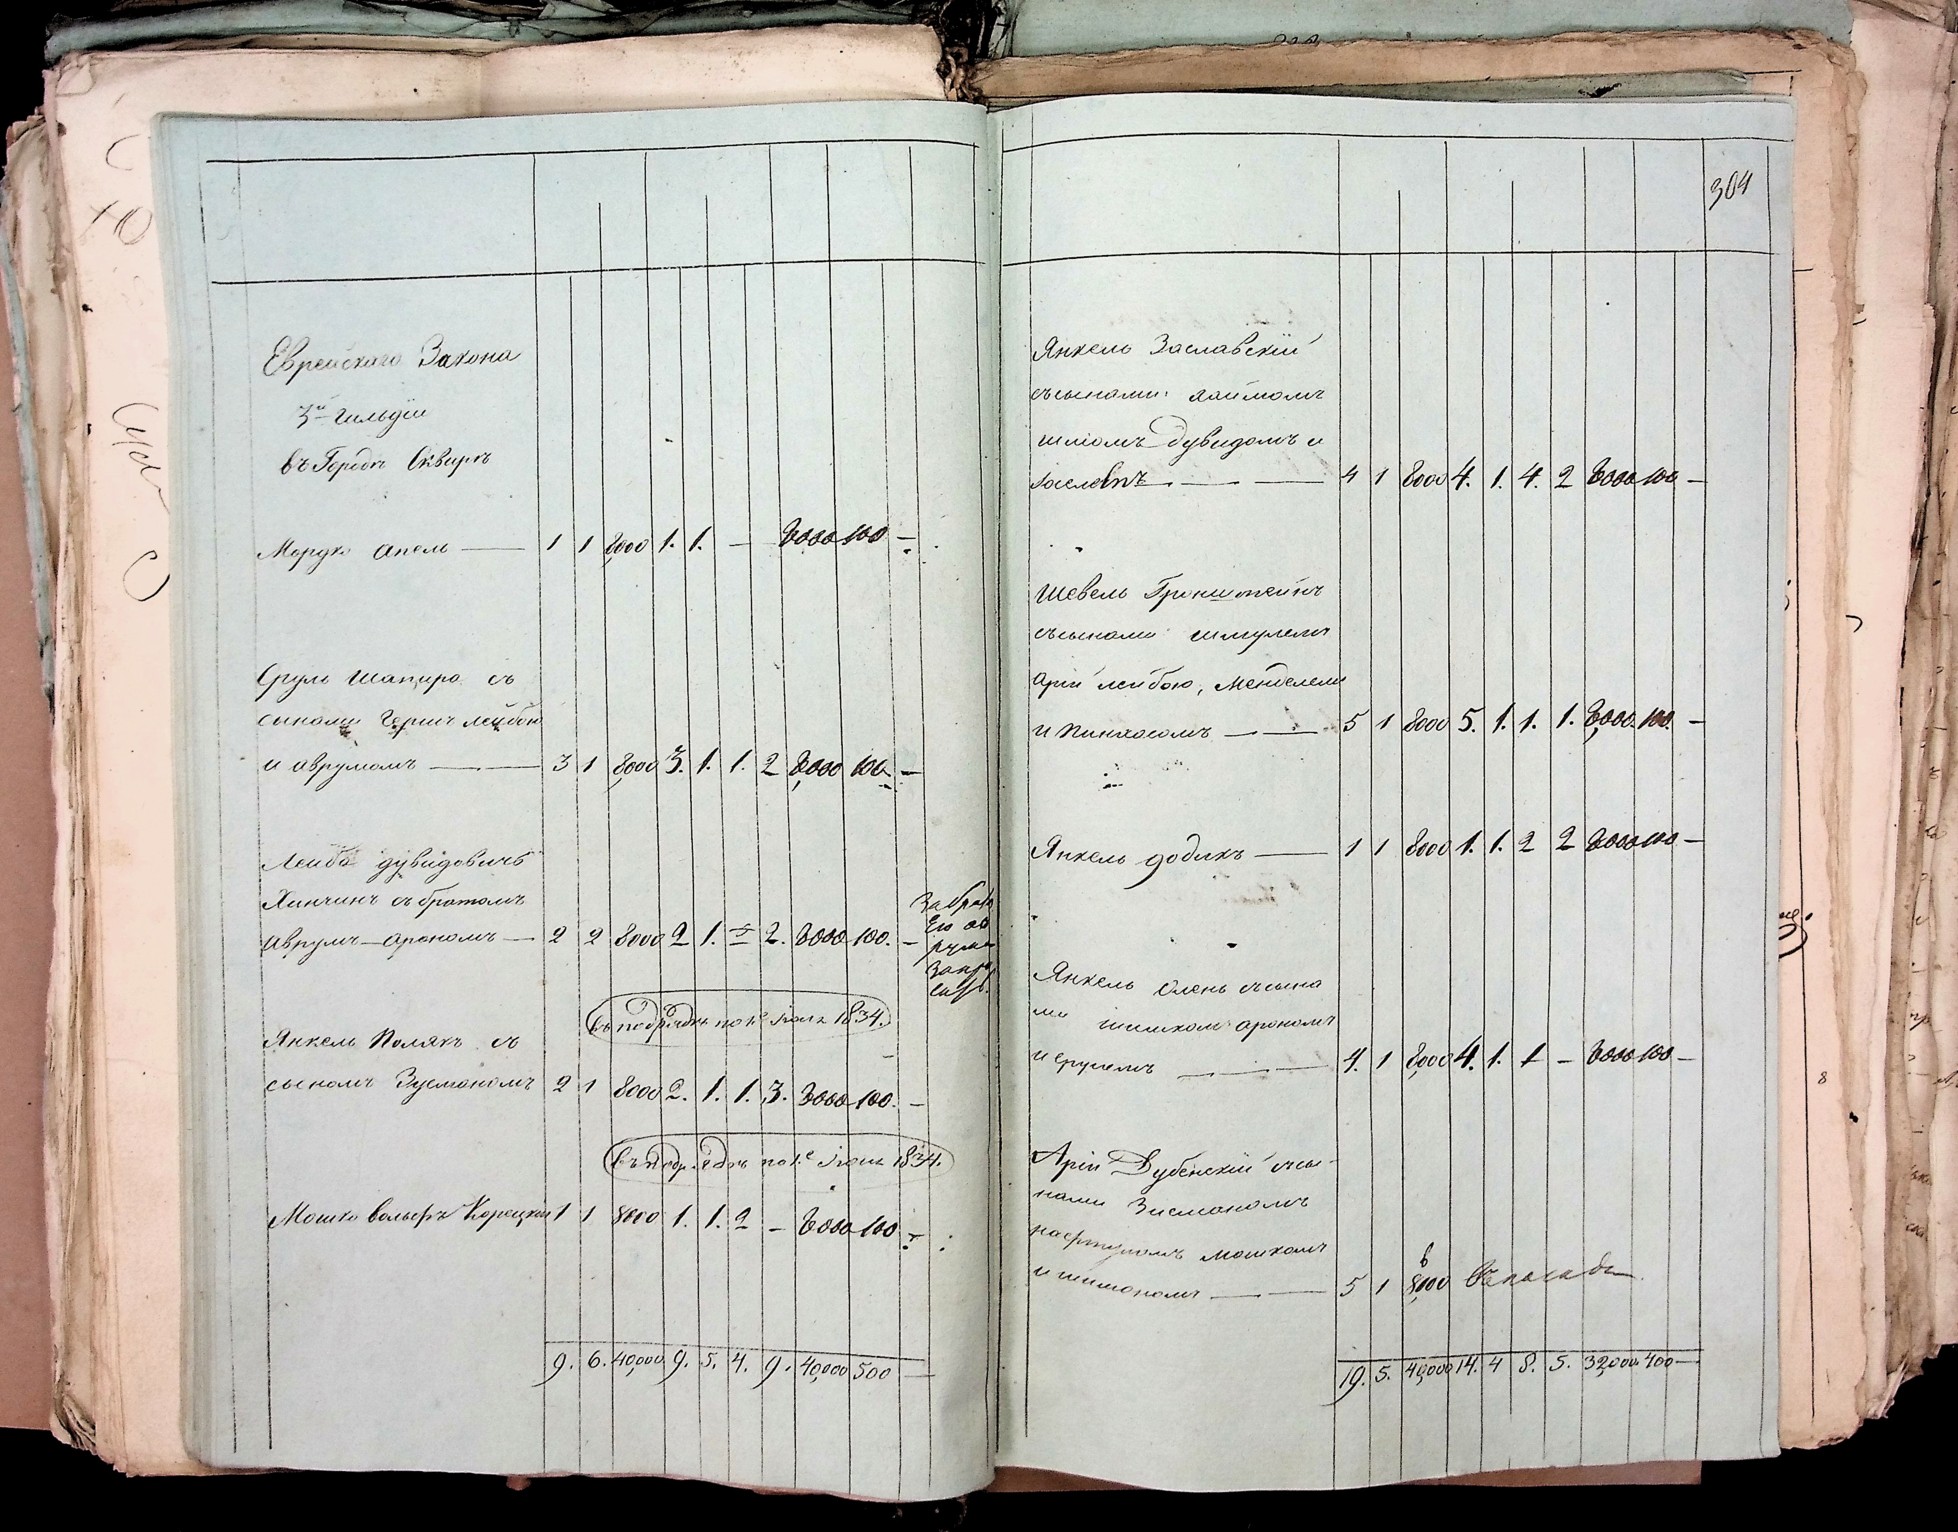 Еврейскаго Закона
3й Гильдіи
въ Городѣ Сквирѣ
Мордко Апель — 1 1 8000 1. 1. — 8000 100 —
Сруль Шапиро съ
сынами Гершъ лейбою
и аврумомъ — 3 1 8,000 3. 1. 1. 2 8,000 100 —
Лейба дувидовичъ
Хинчинъ съ братомъ
аврумъ—арономъ — 2 2 8000 2 1. 2. 8000 100. —
За брата
Его ав
рума
въ подрядѣ по 1е 1834.
Янкель Полякъ съ
сыномъ Зусманомъ 2 1 8000 2. 1. 1. 3. 8000 100. —
въ подрядѣ по 1е 1834.
Мошко вольфъ Корецкій 1 1 8000 1. 1. 2 — 8000 100 —
9. 6. 40,000 9. 5. 4. 9. 40,000 500 —
304
Янкель Заславскій
съсынами хаимомъ
шліомъ дувидомъ и
4 1 8000 4. 1. 4. 2 8000 100 —
Шевель Гринштейнъ
съсынами шмулемъ
Арій лейбою, Менделемъ
и Пинхасомъ — 5 1 8000 5. 1. 1. 1. 8,000. 100. —
Янкель додикъ — 1 1 8000 1. 1. 2 2 8000 100 —
Янкель Олень съсына
ми арономъ
и срулемъ — 4. 1 8,000 4. 1. 1 — 8000 100 —
Арій Дубенскій съсы-
нами Зисманомъ
мошкомъ
и шимономъ — 5 1 8,000
19. 5. 40,000 14. 4 8. 5. 32,000 400 —